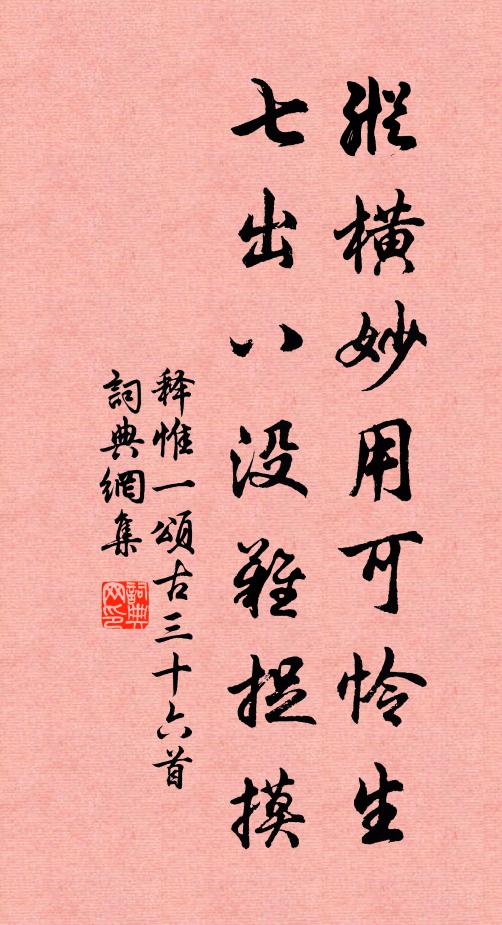 縱橫妙用可怜生
七出八没難捉摸
释惟一頌古三十六首
詞典網集
詞典
网印